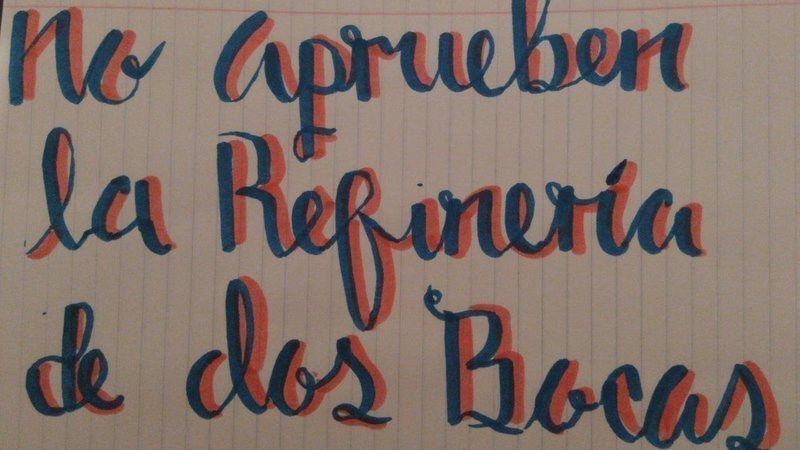 No aprueben
la Refinería
de dos Bocas